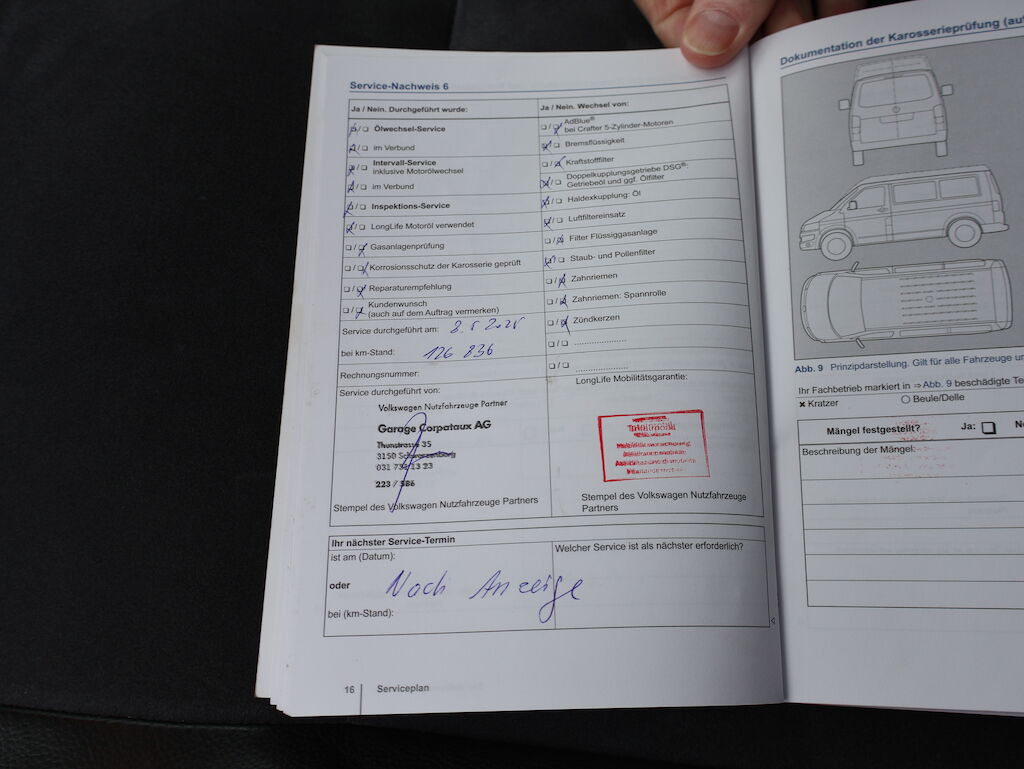 Service-Nachweis 6
Ja / Nein. Durchgeführt wurde:
Ölwechsel-Service
im Verbund
Intervall-Service
inklusive Motorölwechsel
im Verbund
Inspektions-Service
LongLife Motoröl verwendet
Gasanlagenprüfung
Korrosionsschutz der Karosserie geprüft
Reparaturempfehlung
Kundenwunsch
(auch auf dem Auftrag vermerken)
Service durchgeführt am:
bei km-Stand: 126 836
Rechnungsnummer:
Service durchgeführt von:
Volkswagen Nutzfahrzeuge Partner
Garage Corpataux AG
Thunstrasse 35
3150 Schwarzenburg
223 / 586
Stempel des Volkswagen Nutzfahrzeuge Partners
Ja / Nein. Wechsel von:
AdBlue®
bei Crafter 5-Zylinder-Motoren
Bremsflüssigkeit
Kraftstofffilter
Doppelkupplungsgetriebe DSG®:
Getriebeöl und ggf. Ölfilter
Haldexkupplung: Öl
Luftfiltereinsatz
Filter Flüssiggasanlage
Staub- und Pollenfilter
Zahnriemen
Zahnriemen: Spannrolle
Zündkerzen
LongLife Mobilitätsgarantie:
Stempel des Volkswagen Nutzfahrzeuge
Partners
Ihr nächster Service-Termin
ist am (Datum):
oder Nach Anzeige
bei (km-Stand):
Welcher Service ist als nächster erforderlich?
16 Serviceplan
Dokumentation der Karosserieprüfung
Abb. 9 Prinzipdarstellung. Gilt für alle Fahrzeuge
Ihr Fachbetrieb markiert in ⇒ Abb. 9 beschädigte
Kratzer Beule/Delle
Mängel festgestellt? Ja:
Beschreibung der Mängel: